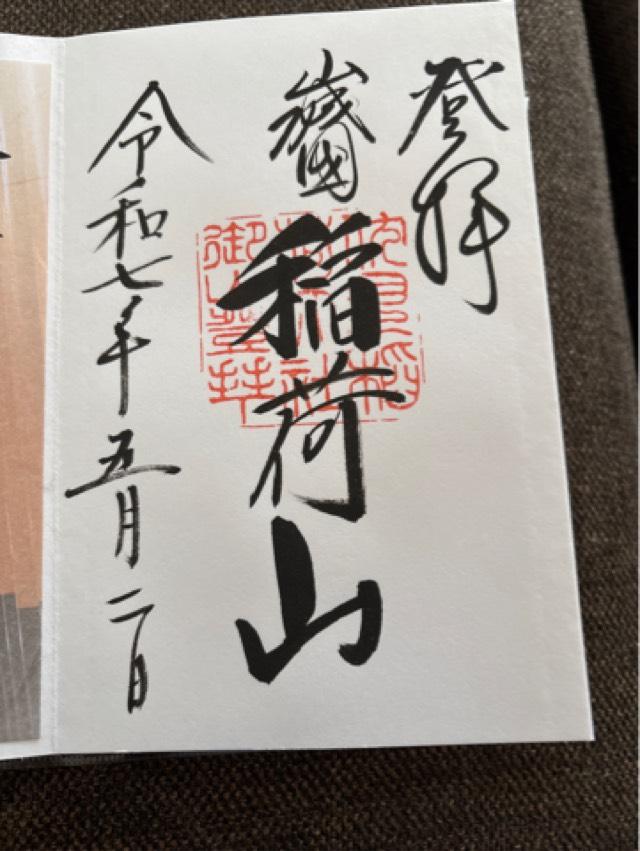 登拝
稲荷山
令和七年五月二日
御山登拝